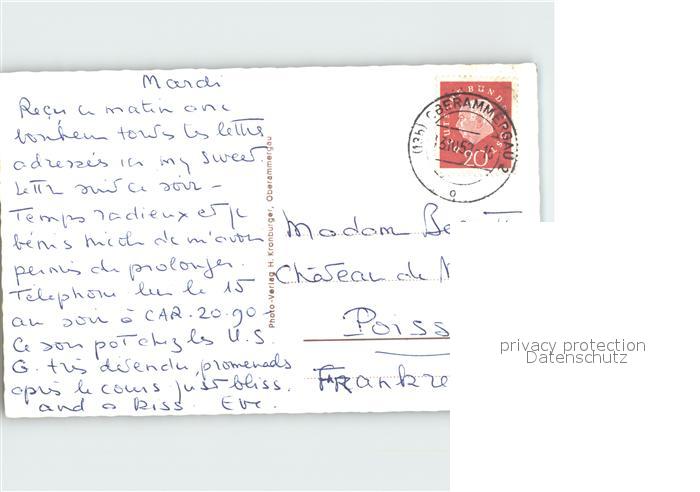 Mardi
Reçu ce matin avec
bonheur toutes tes lettres
adressées ici my sweet.
Lettre suit ce soir -
Temps radieux et je
bénis Mick de m'avoir
permis de prolonger.
Téléphone lun le 15
au soir à CAR. 20.90 -
Ce soir pot chez les U.S.
G. très détendu, promenades
après le cours just bliss.
and a kiss Eve.
Photo-Verlag H. Kronburger, Oberammergau
(13b) OBERAMMERGAU 2
DEUTSCHE BUNDESPOST
20
Madame Be
Château de
Poiss
Frankre
privacy protection
Datenschutz